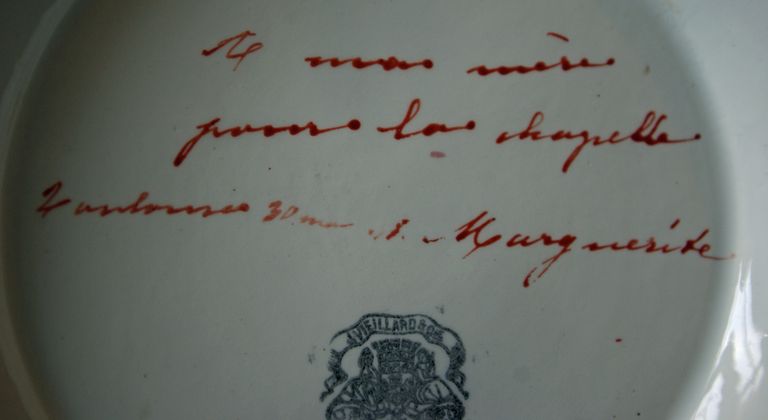 A ma mère
pour la chapelle
Toulouse 30 Marguerite
J. VIEILLARD & Cie